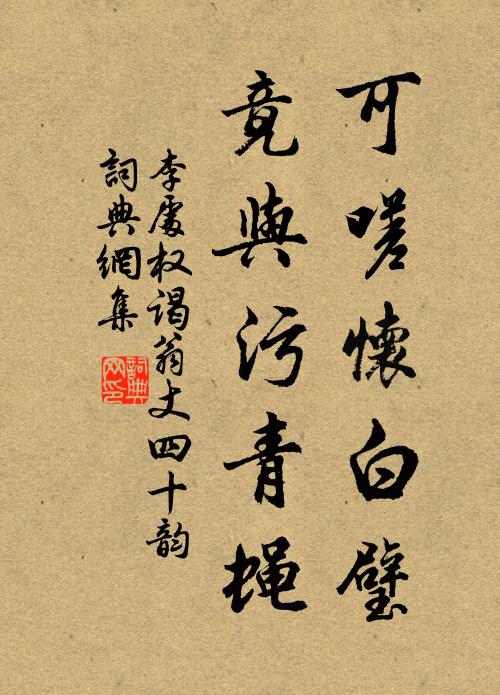 可嗟懷白璧
竟與污青蝇
李處权谒翁丈四十韵
詞典網集
詞典网印